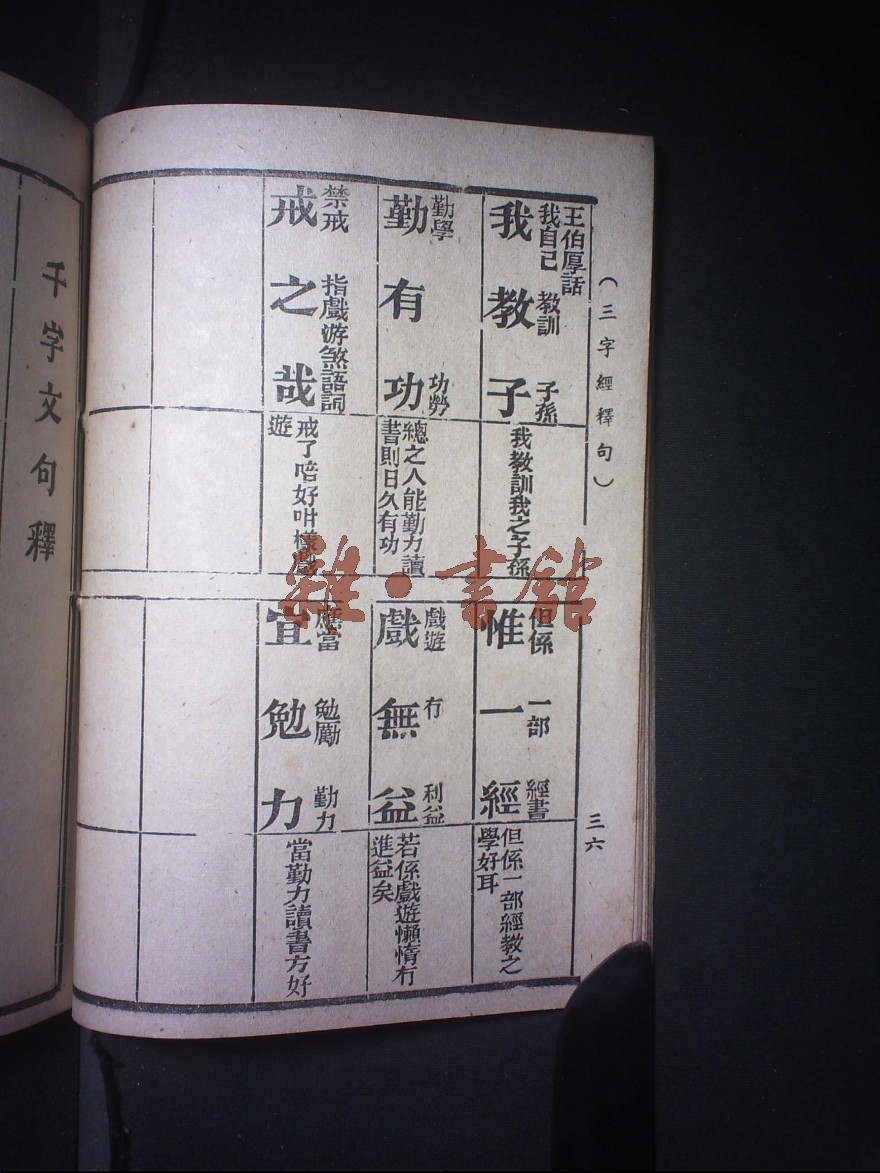 （三字經釋句）
三六
王伯厚話
我自己　教訓　子孫
我教子
我教訓我之子孫
但係　一部　經書
惟一經
但係一部經教之
學好耳
勤學　功勞
勤有功
總之人能勤力讀
書則日久有功
戲遊　冇　利益
戲無益
若係戲遊懶惰冇
進益矣
禁戒　指戲游　煞語詞
戒之哉
戒了唔好咁樣戲
遊
應當　勉勵　勤力
宜勉力
當勤力讀書方好
千字文句釋
雜·書館